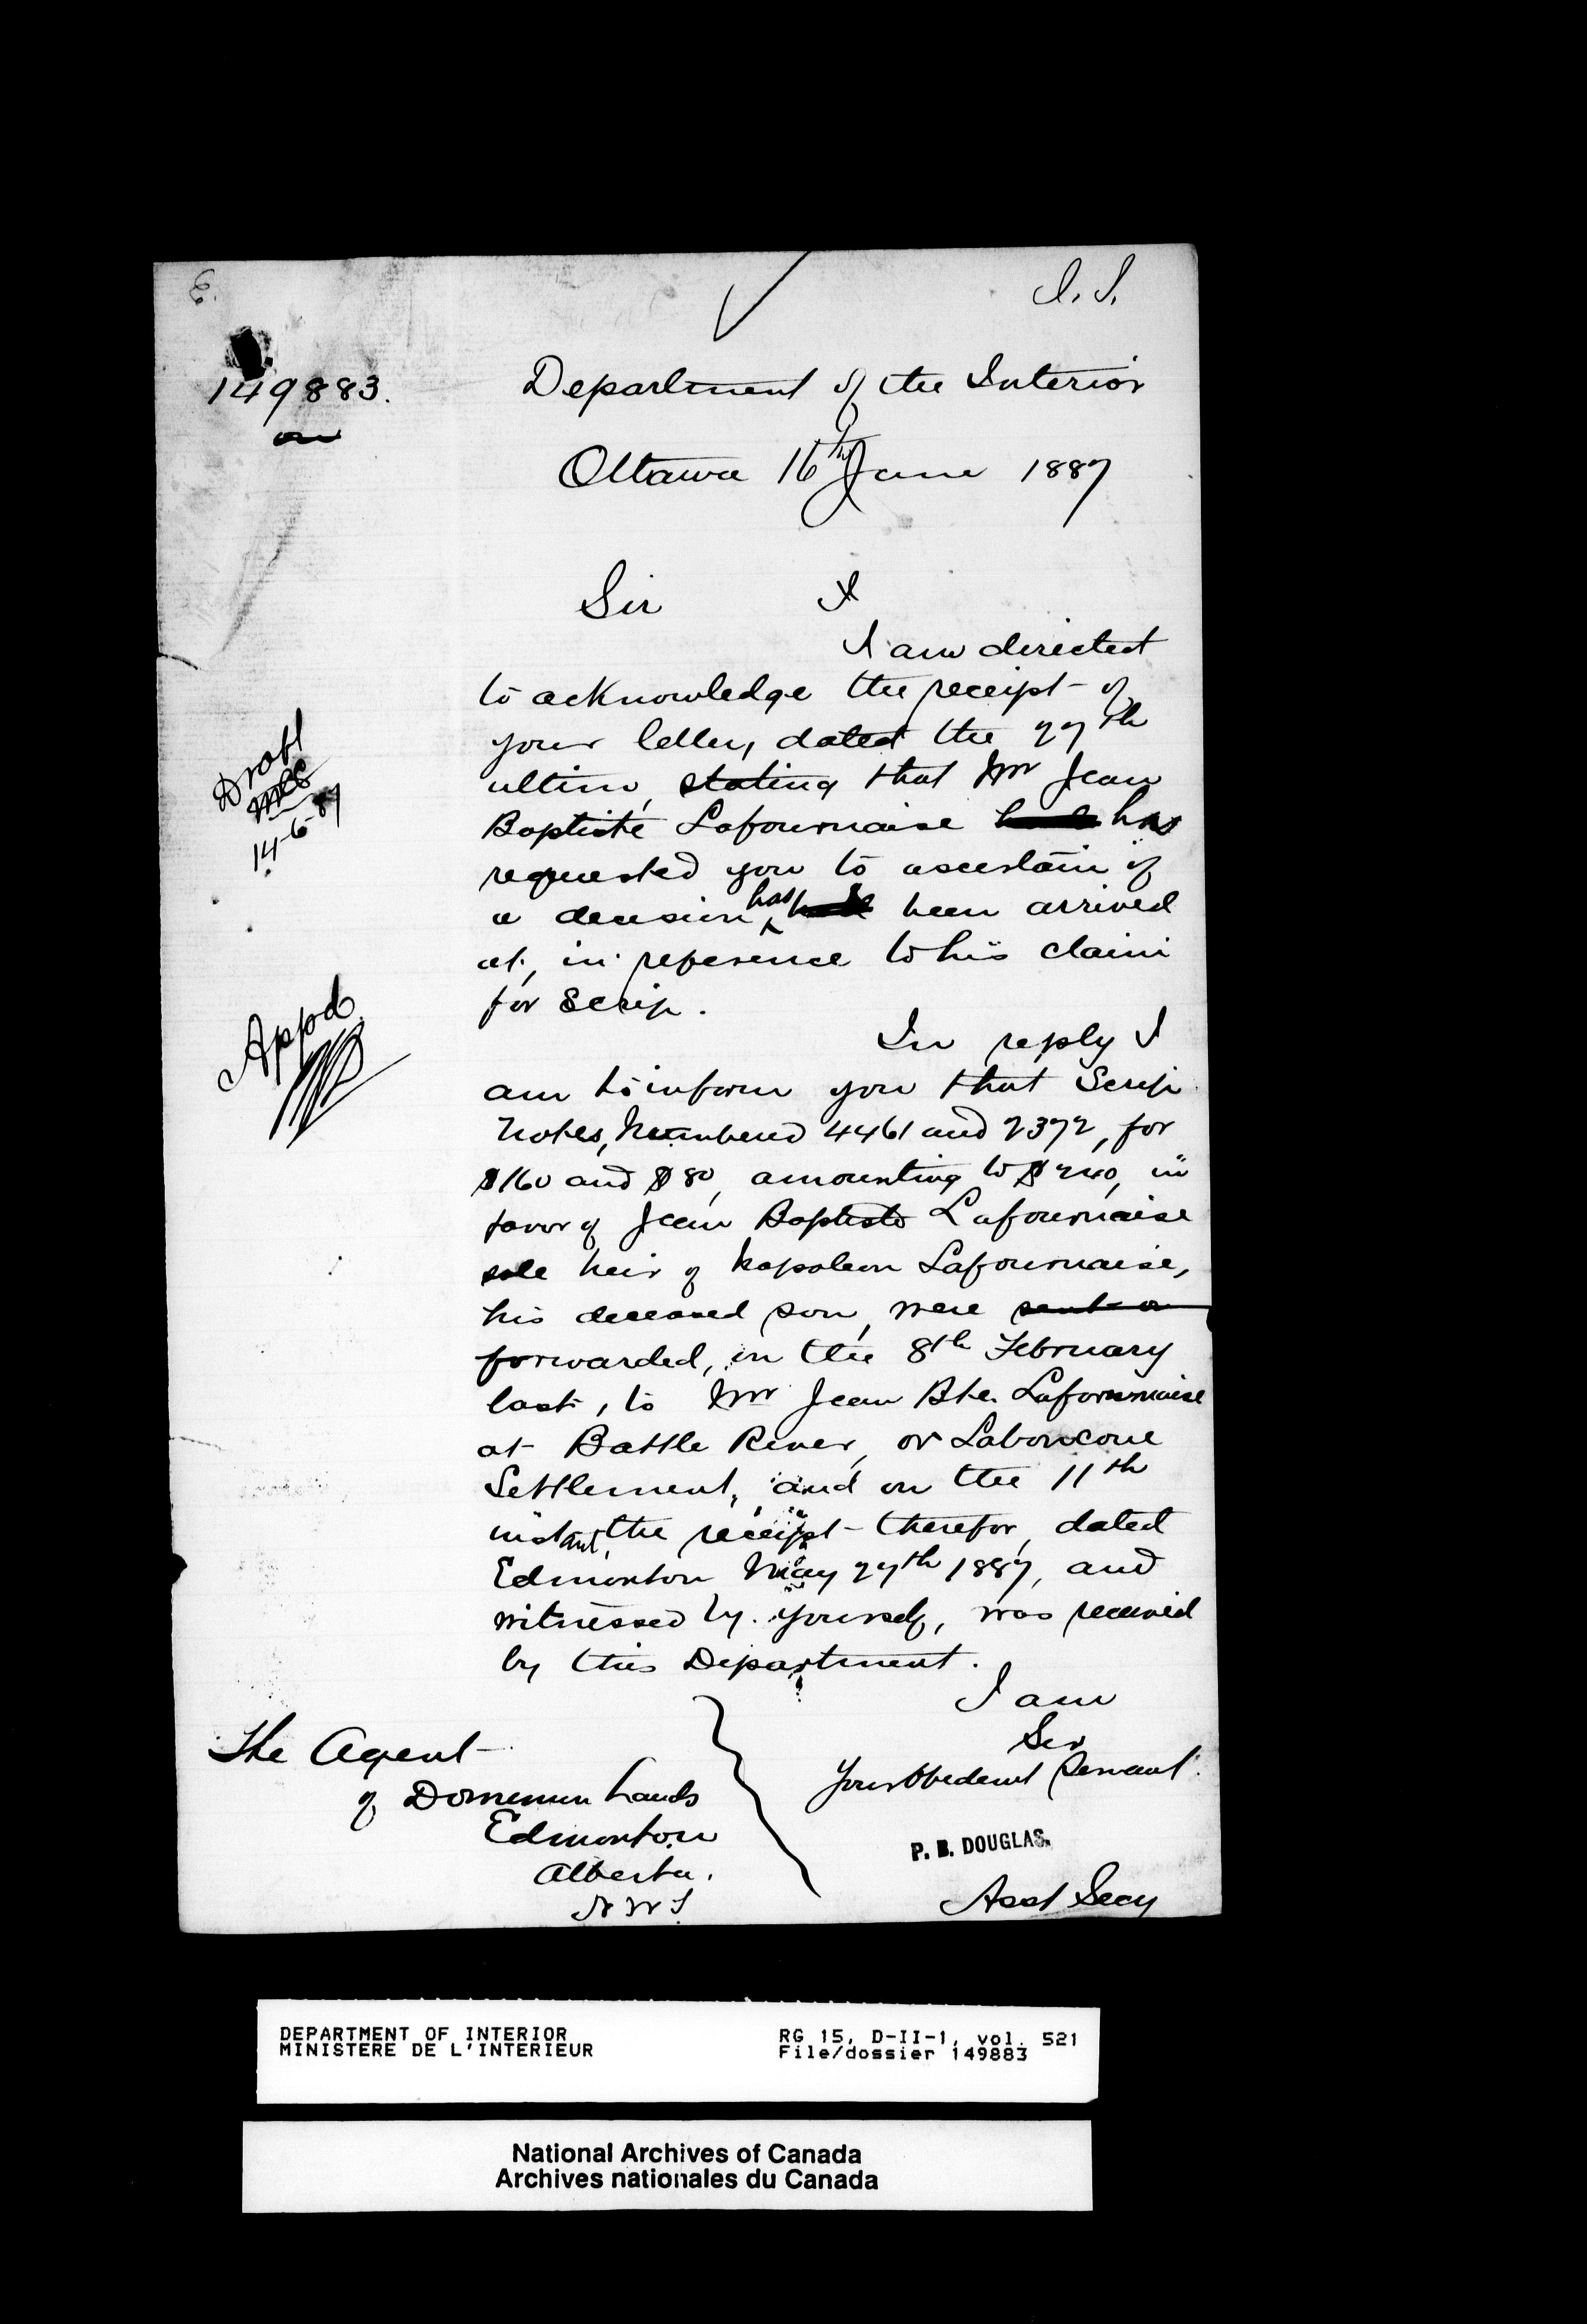 E.
I. S.
149883.
Department of the Interior
Ottawa 16th June 1887
Sir
I
I am directed
to acknowledge the receipt of
your letter, dated the 27th
ultimo, stating that Mr Jean
Baptiste Lafournaise has
requested you to ascertain if
a decision has been arrived
at, in reference to his claim
for Scrip.
Draft
14-6-87
Appd
In reply I
am to inform you that Scrip
Notes, Numbered 4461 and 2372, for
$160 and $80, amounting to $240, in
favor of Jean Baptiste Lafournaise
sole heir of Napoleon Lafournaise,
his deceased son, were sent on
forwarded, on the 8th February
last, to Mr Jean Bte. Lafournaise
at Battle River, or Laboucone
Settlement, and on the 11th
instant, the receipt therefor, dated
Edmonton May 27th 1887, and
witnessed by yourself, was received
by this Department.
I am
Sir
Your Obedient Servant.
P. B. DOUGLAS.
Asst Secy
The Agent
of Dominion Lands
Edmonton
Alberta.
N W T
DEPARTMENT OF INTERIOR
MINISTERE DE L'INTERIEUR
RG 15, D-II-1, vol. 521
File/dossier 149883
National Archives of Canada
Archives nationales du Canada